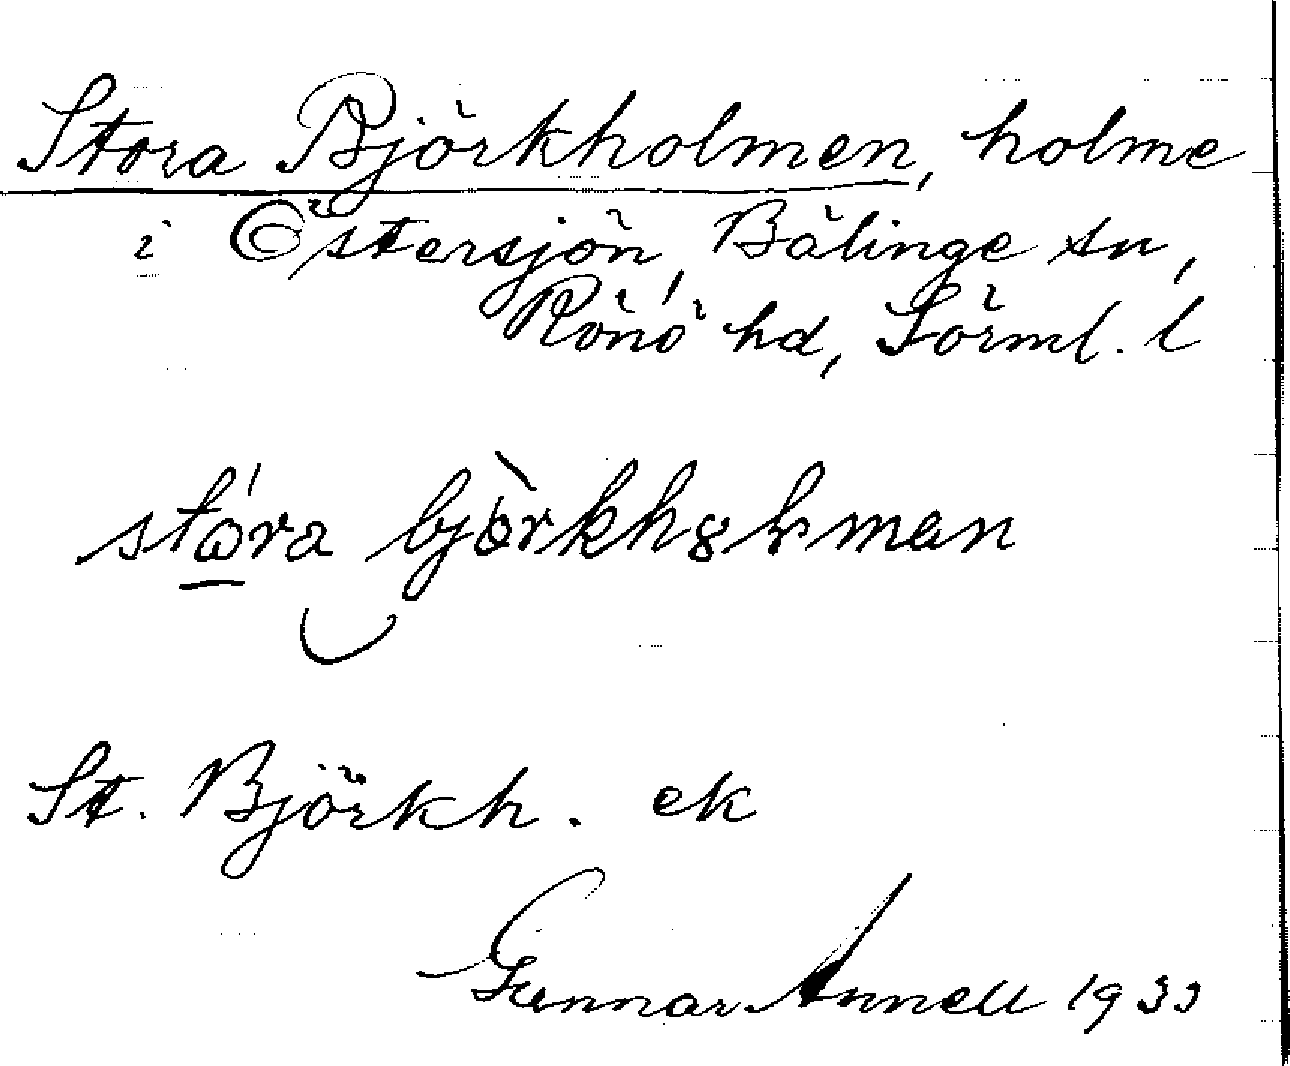 Stora Björkholmen, holme
i Östersjön, Bälinge sn,
Rönö hd, Sörml. l
stó̱ra bjòrkhȣlmen
St. Björkh. ek
Gunnar Annell 1933